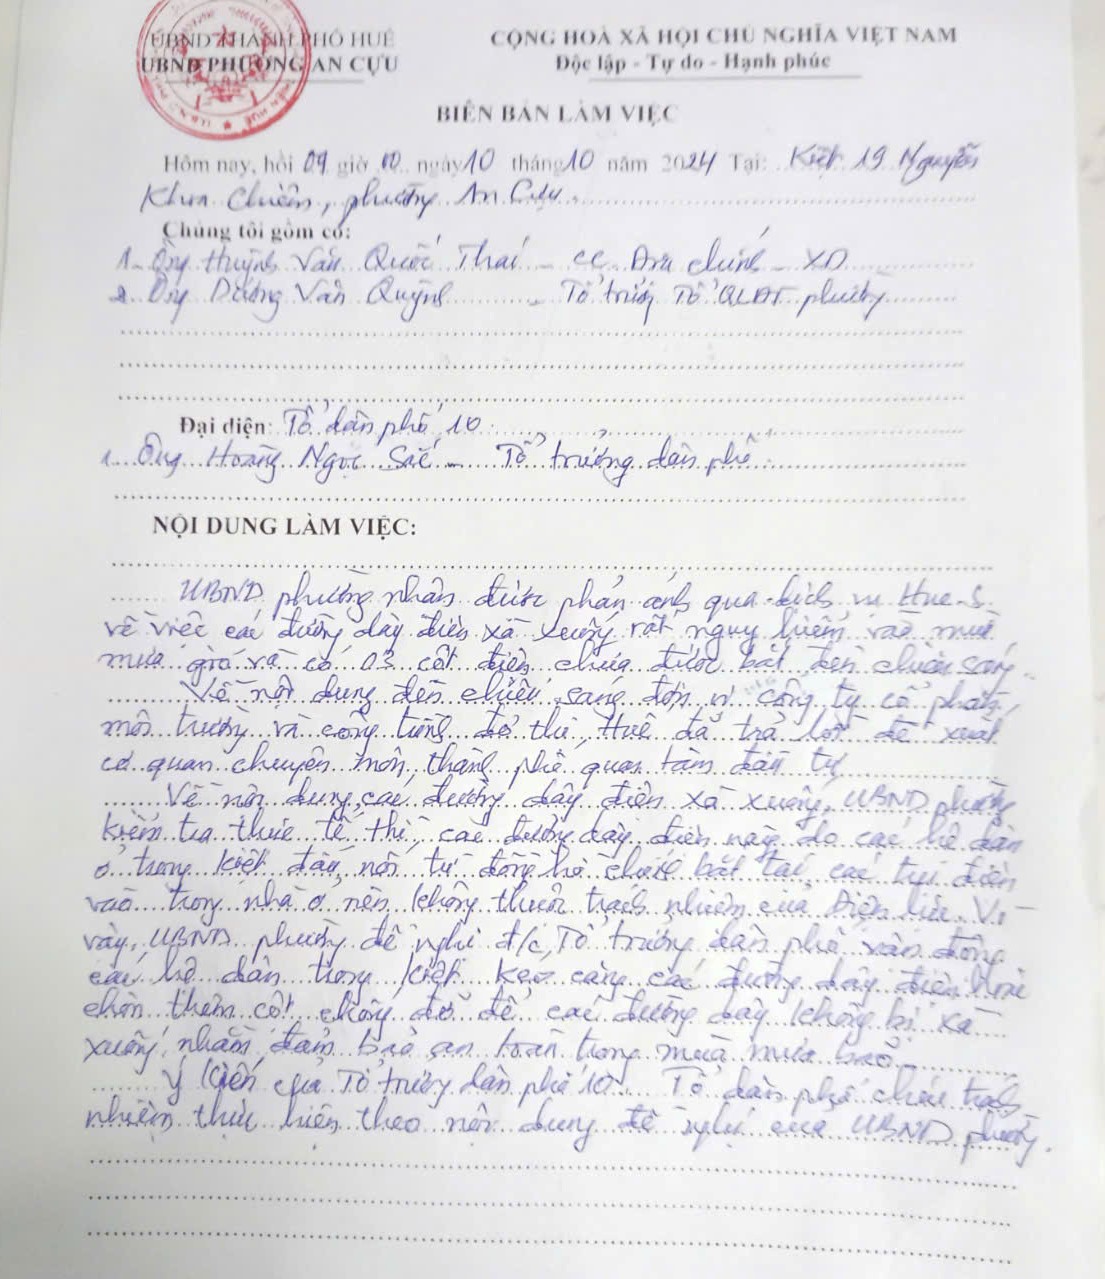 UBND THÀNH PHỐ HUẾ
UBND PHƯỜNG AN CỰU
CỘNG HOÀ XÃ HỘI CHỦ NGHĨA VIỆT NAM
Độc lập - Tự do - Hạnh phúc
BIÊN BẢN LÀM VIỆC
Hôm nay, hồi 09 giờ 00 ngày 10 tháng 10 năm 2024 Tại: Kiệt 19 Nguyễn
Khoa Chiêm, phường An Cựu.
Chúng tôi gồm có:
1- Ông Huỳnh Văn Quốc Thái - CC Địa chính - XD
2. Ông Dương Văn Quỳnh - Tổ trưởng Tổ QLĐT phường
Đại diện: Tổ dân phố 10
1. Ông Hoàng Ngọc Sắc - Tổ trưởng dân phố
NỘI DUNG LÀM VIỆC:
UBND phường nhận được phản ánh qua dịch vụ Hue-S
về việc các đường dây điện xà xuống rất nguy hiểm vào mùa
mưa gió và có 03 cột điện chưa được bắt đèn chiếu sáng.
Về nội dung đèn chiếu sáng đơn vị công ty cổ phần
môi trường và công trình đô thị Huế đã trả lời đề xuất
cơ quan chuyên môn thành phố quan tâm đầu tư
Về nội dung các đường dây điện xà xuống, UBND phường
kiểm tra thực tế thì các đường dây điện này do các hộ dân
ở trong kiệt đấu nối từ đồng hồ được bắt tại các trụ điện
vào trong nhà ở nên không thuộc trách nhiệm của Điện lực. Vì
vậy, UBND phường đề nghị đ/c Tổ trưởng dân phố vận động
các hộ dân trong kiệt kéo căng các đường dây điện hoặc
chôn thêm cột chống đỡ để các đường dây không bị xà
xuống, nhằm đảm bảo an toàn trong mùa mưa bão.
Ý kiến của Tổ trưởng dân phố 10: Tổ dân phố chịu trách
nhiệm thực hiện theo nội dung đề nghị của UBND phường.